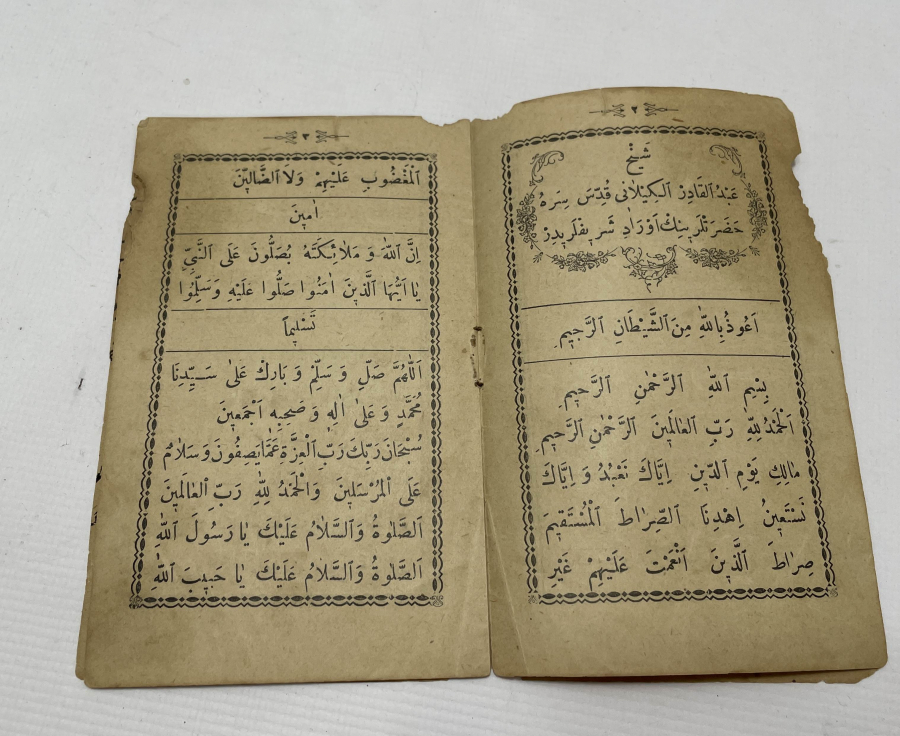 ٢
شَيْخْ
عَبْدُ الْقَادِرْ اَلْكِيْلَانٖى قُدِّسَ سِرَهُ
حَضَرَتْلَرٖينِكْ اَوْرَادِ شَرٖيفْلَرٖيدِرْ
اَعُوذُ بِاللّٰهِ مِنَ الشَّيْطَانِ الرَّجٖيمِ
بِسْمِ اللّٰهِ الرَّحْمٰنِ الرَّحٖيمِ
اَلْحَمْدُ لِلّٰهِ رَبِّ الْعَالَمٖينَ اَلرَّحْمٰنِ الرَّحٖيمِ
مَالِكِ يَوْمِ الدّٖينِ اِيَّاكَ نَعْبُدُ وَ اِيَّاكَ
نَسْتَعٖينُ اِهْدِنَا الصِّرَاطَ الْمُسْتَقٖيمَ
صِرَاطَ الَّذٖينَ اَنْعَمْتَ عَلَيْهِمْ غَيْرِ
٣
اَلْمَغْضُوبِ عَلَيْهِمْ وَلَا الضَّالّٖينَ
اٰمٖينَ
اِنَّ اللّٰهَ وَ مَلٰئِكَتَهُ يُصَلُّونَ عَلَى النَّبِىِّ
يَا اَيُّهَا الَّذٖينَ اٰمَنُوا صَلُّوا عَلَيْهِ وَسَلِّمُوا
تَسْلٖيمًا
اَللّٰهُمَّ صَلِّ وَ سَلِّمْ وَ بَارِكْ عَلٰى سَيِّدِنَا
مُحَمَّدٍ وَ عَلٰى اٰلِهٖ وَ صَحْبِهٖ اَجْمَعٖينَ
سُبْحَانَ رَبِّكَ رَبِّ الْعِزَّةِ عَمَّا يَصِفُونَ وَ سَلَامٌ
عَلَى الْمُرْسَلٖينَ وَالْحَمْدُ لِلّٰهِ رَبِّ الْعَالَمٖينَ
اَلصَّلٰوةُ وَالسَّلَامُ عَلَيْكَ يَا رَسُولَ اللّٰهِ
اَلصَّلٰوةُ وَالسَّلَامُ عَلَيْكَ يَا حَبٖيبَ اللّٰهِ